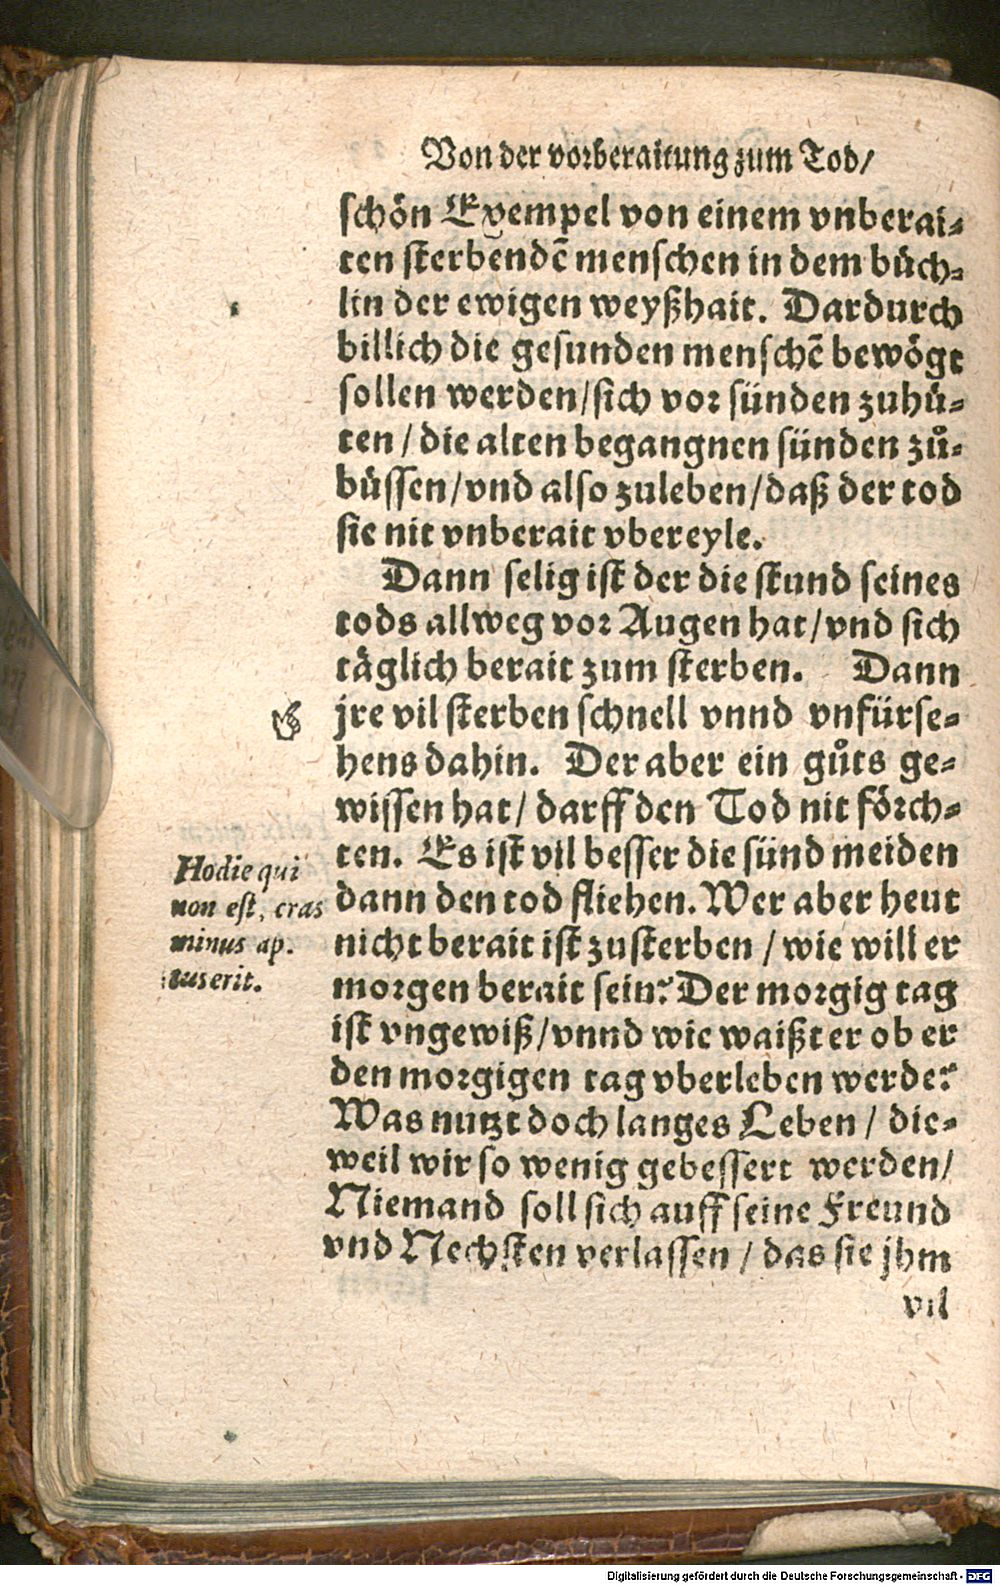 Von der vorberaitung zum Tod/
schön Exempel von einem vnberai⸗
ten sterbendē menschen in dem büch⸗
lin der ewigen weyßhait. Dardurch
billich die gesunden menschē bewögt
sollen werden/sich vor sünden zuhü⸗
ten/die alten begangnen sünden zů⸗
büssen/vnd also zuleben/daß der tod
sie nit vnberait vbereyle.
Dann selig ist der die stund seines
tods allweg vor Augen hat/vnd sich
täglich berait zum sterben. Dann
☞ jre vil sterben schnell vnnd vnfürse⸗
hens dahin. Der aber ein gůts ge⸗
wissen hat/darff den Tod nit förch⸗
ten. Es ist vil besser die sünd meiden
dann den tod fliehen. Wer aber heut
nicht berait ist zusterben/wie will er
morgen berait sein? Der morgig tag
ist vngewiß/vnnd wie waißt er ob er
den morgigen tag vberleben werde?
Was nutzt doch langes Leben/die⸗
weil wir so wenig gebessert werden/
Niemand soll sich auff seine Freund
vnd Nechsten verlassen/das sie jhm
vil
Hodie qui
non est, cras
minus ap.
tus erit.
Digitalisierung gefördert durch die Deutsche Forschungsgemeinschaft - DFG